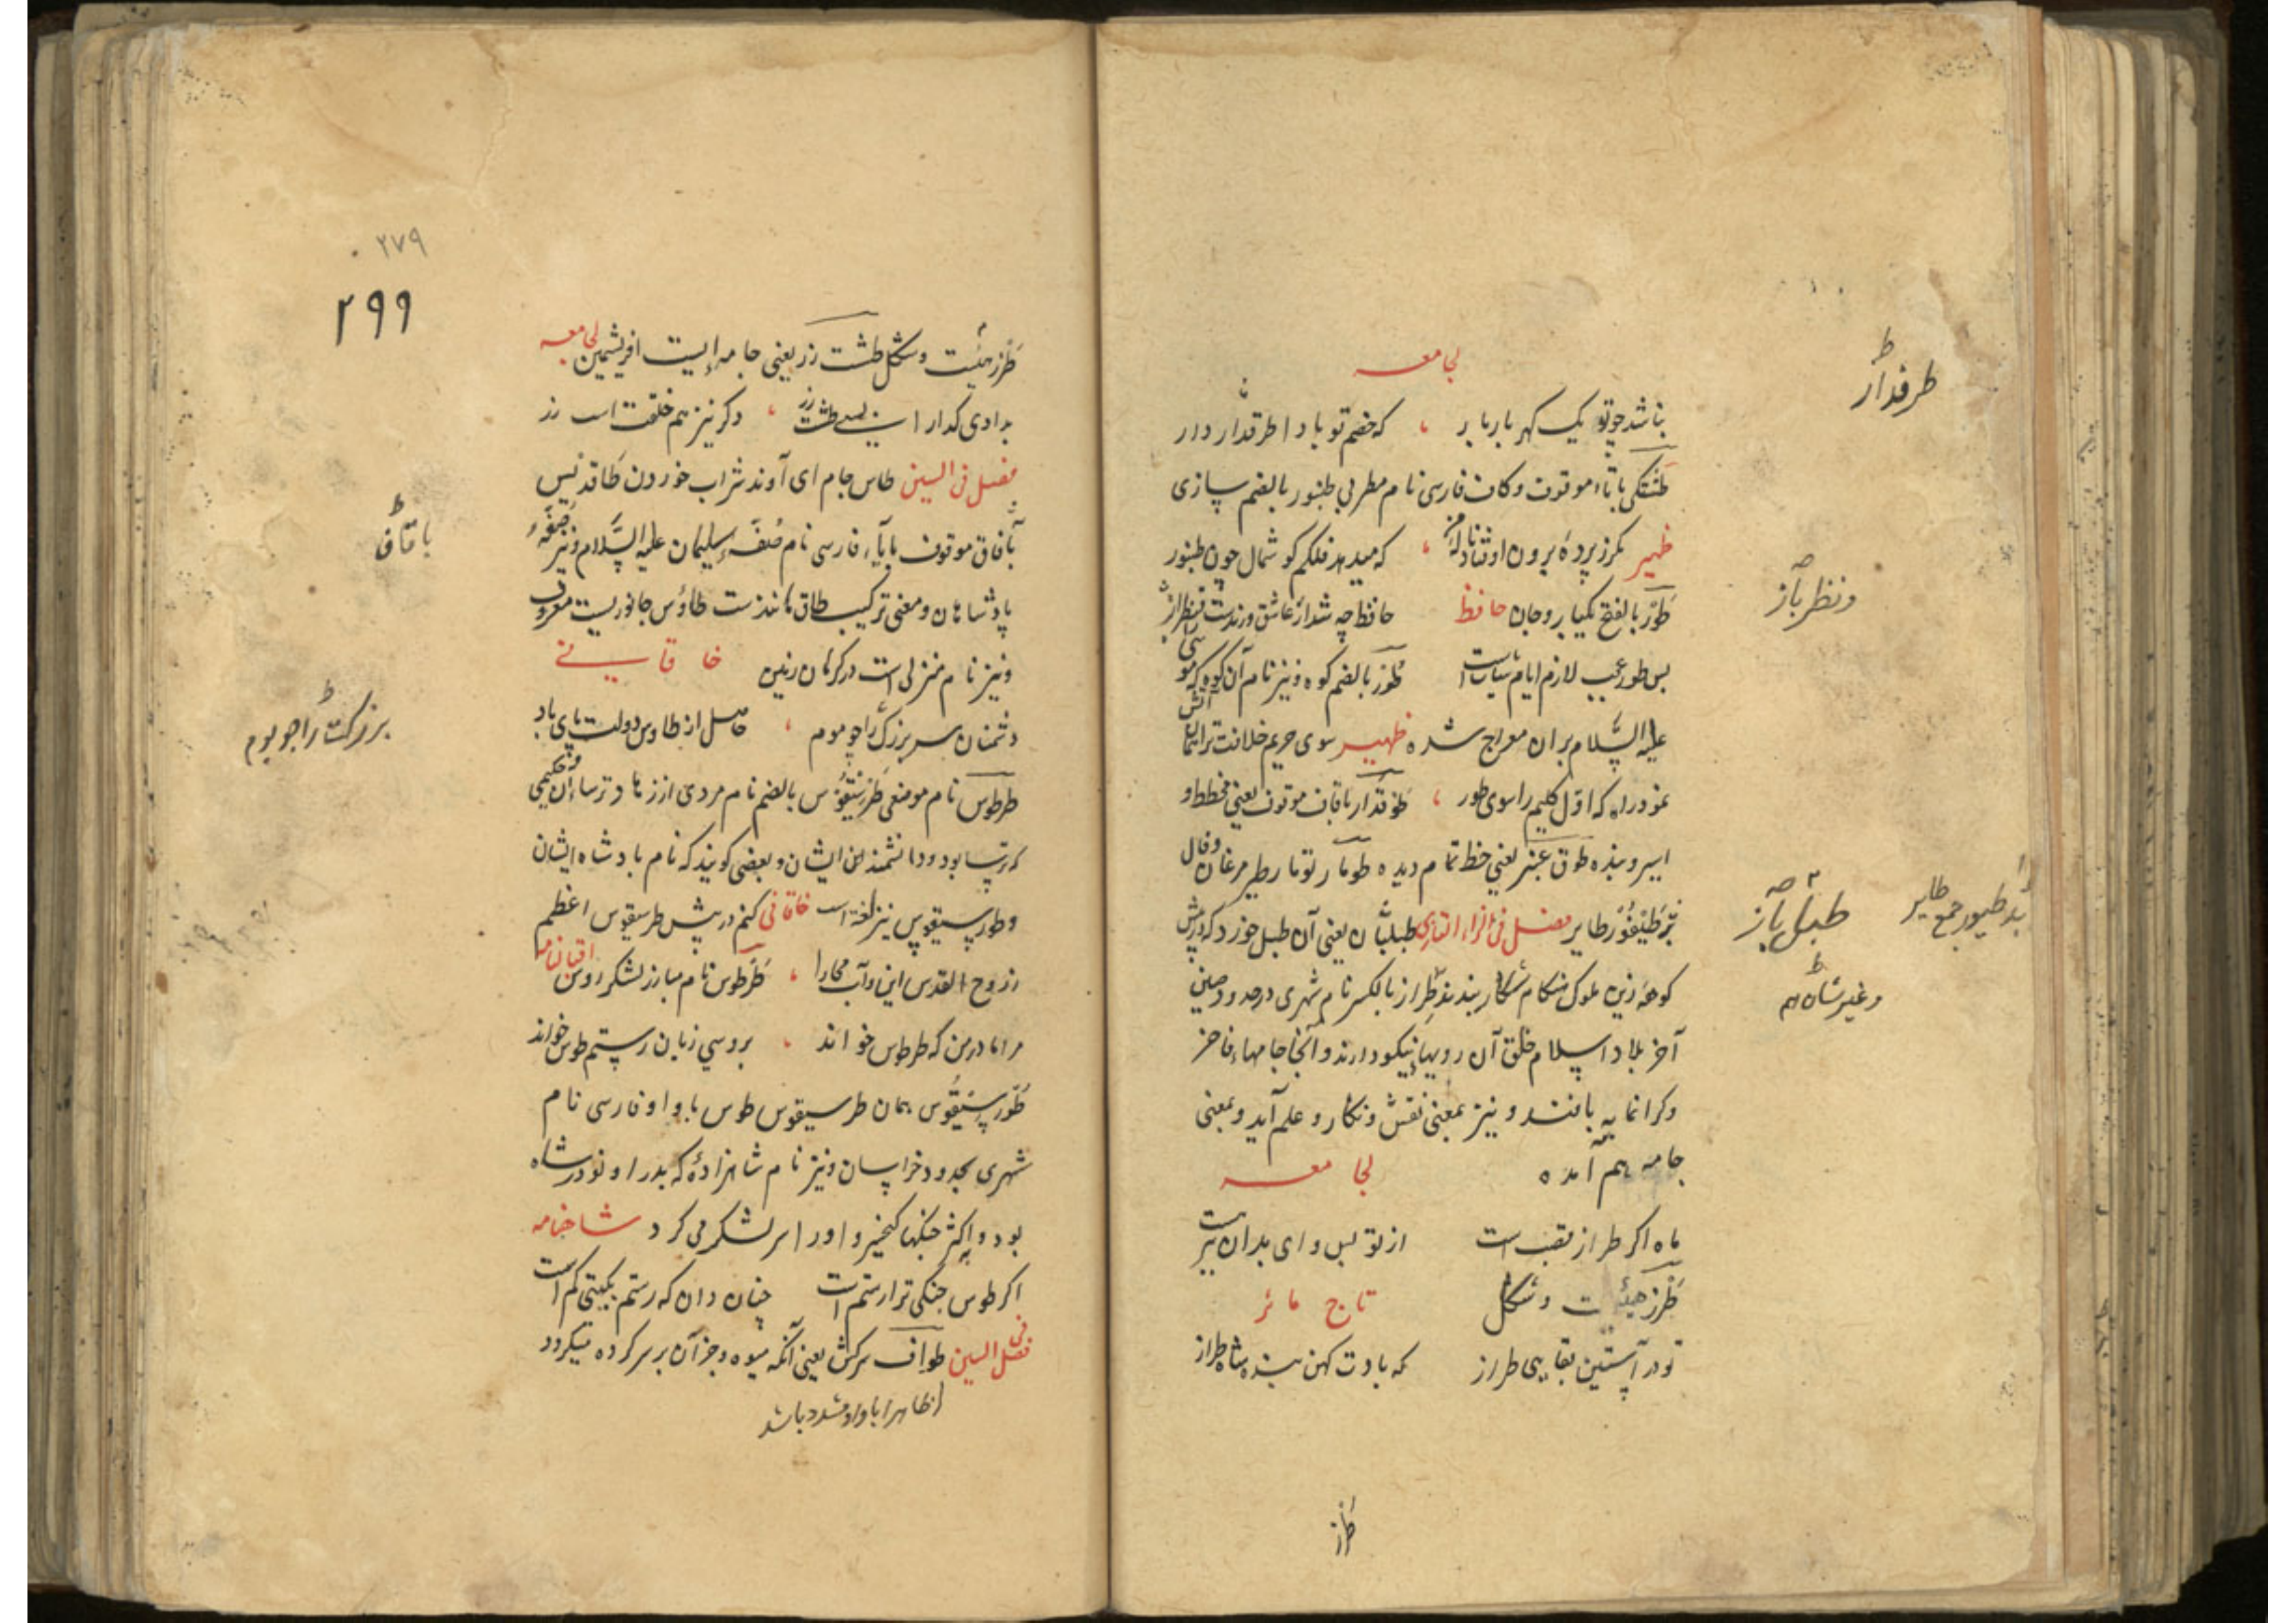 لجامعه
نباشد چو تو یک گهر بار بار ، که خضم تو بادا طرفدار دار
طنتکی با تاء موقوف و کاف فارسی نام مطربی طنبور بالضم سازی
ظهیر مگر ز پرده برون اوفتاد ناله من ، که میدهد فلکم گوشمال چون طنبور
طور بالفتح یکبار و جان حافظ حافظ چه شد ار عاشق و رندست و نظرباز
بس طور عجب لازم ایام شبابست طور بالضم کوه و نیز نام آن کوه که موسی
علیه السلام بران معراج شده ظهیر سوی حریم خلافت ترا همان
نمود راه که اول کلیم را سوی طور ، طوقدار باقاف موقوف یعنی مخطط و
اسیر و بنده طوق عنبر یعنی خط تمام دمیده طومار تومار طیر مرغان و فال
بد طیفور طایر فصل فی الزاء التازی طبل باز یعنی آن طبل خورد که در پیش
کوهه زین ملوک هنگام شکار بندند طراز بالکسر نام شهری در حدود چین
آخر بلاد اسلام خلق آن رویها نیکو دارند و آنجا جامهاء فاخر
و گرانمایه بافند و نیز بمعنی نقش و نگار و علم آید و بمعنی
جامه هم آمده لجامعه
ماه اگر طراز بقب است از تو لبس وای بدان
طرز هیئت و شکل تاج مآثر
تو در آستین بقایی طراز که بادت کهن بنده شاه طراز
طرز
طرفدار
و نظر باز
طبل باز
بد طیور جمع طایر
و غیر شاه هم
۲۷۹
۲۹۹
طرز هیئت و شکل طشت زر یعنی جامه ایست ابریشمین لجامعه
بدادی گدا را طشت زر ، دگر نیز هم خلعت زر
فصل فی السین طاس جام ای آوند شراب خوردن طاقدیس
باقاف موقوف بایاء فارسی نام صفهٔ سلیمان علیه السلام و نیز صفهٔ
پادشاهان و معنی ترکیب طاق مانندست طاؤس جانوریست معروف
و نیز نام منزلی است در کرمان زمین خاقانی
دشمنان سر بزرگ را چو موم ، حاصل از طاوس دولت پای باد
طرطوس نام موضعی طرسیقوس بالضم نام مردی از زهاد ترساان و حکیمی
که ترسا بود و دانشمند این ایشان و بعضی گویند که نام بادشاه ایشان
و طورسیقوس نیز لغت است خاقانی کنم در پیش طرسیقوس اعظم
ز روح القدس ابن و آب مجارا ، طرطوس نام مبارز لشکر روس اقبالنامه
مرا مادر من که طرطوس خواند ، بروسی زبان رستم طوس خواند
طورسیقوس همان طرسیقوس طوس با واو فارسی نام
شهری بحدود خراسان و نیز نام شاهزادهٔ که پدر او نوذر شاه
بود و اکثر جنگها کیخسرو او را سر لشکر می کرد شاهنامه
اگر طوس جنگی ترا رستم است چنان دان که رستم بگیتی کم است
فصل فی السین طواف سرکش یعنی آنکه میوه و جز آن بر سر کرده میگردد
ظاهرا با واو مشدد باشد
با قاف
بزرگت را چو موم